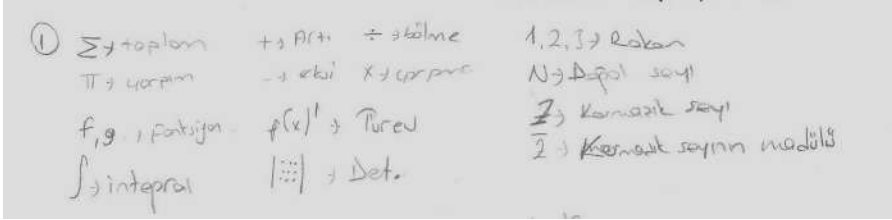 ① Σ → toplam + → Artı ÷ → bölme 1,2,3 → Rakam
Π → çarpım - → eksi x → çarpma N → Doğal sayı
f,g → fonksiyon f(x)' → Türev Z → Karmaşık sayı
∫ → integral |:::| → Det. z̄ → Karmaşık sayının modülü